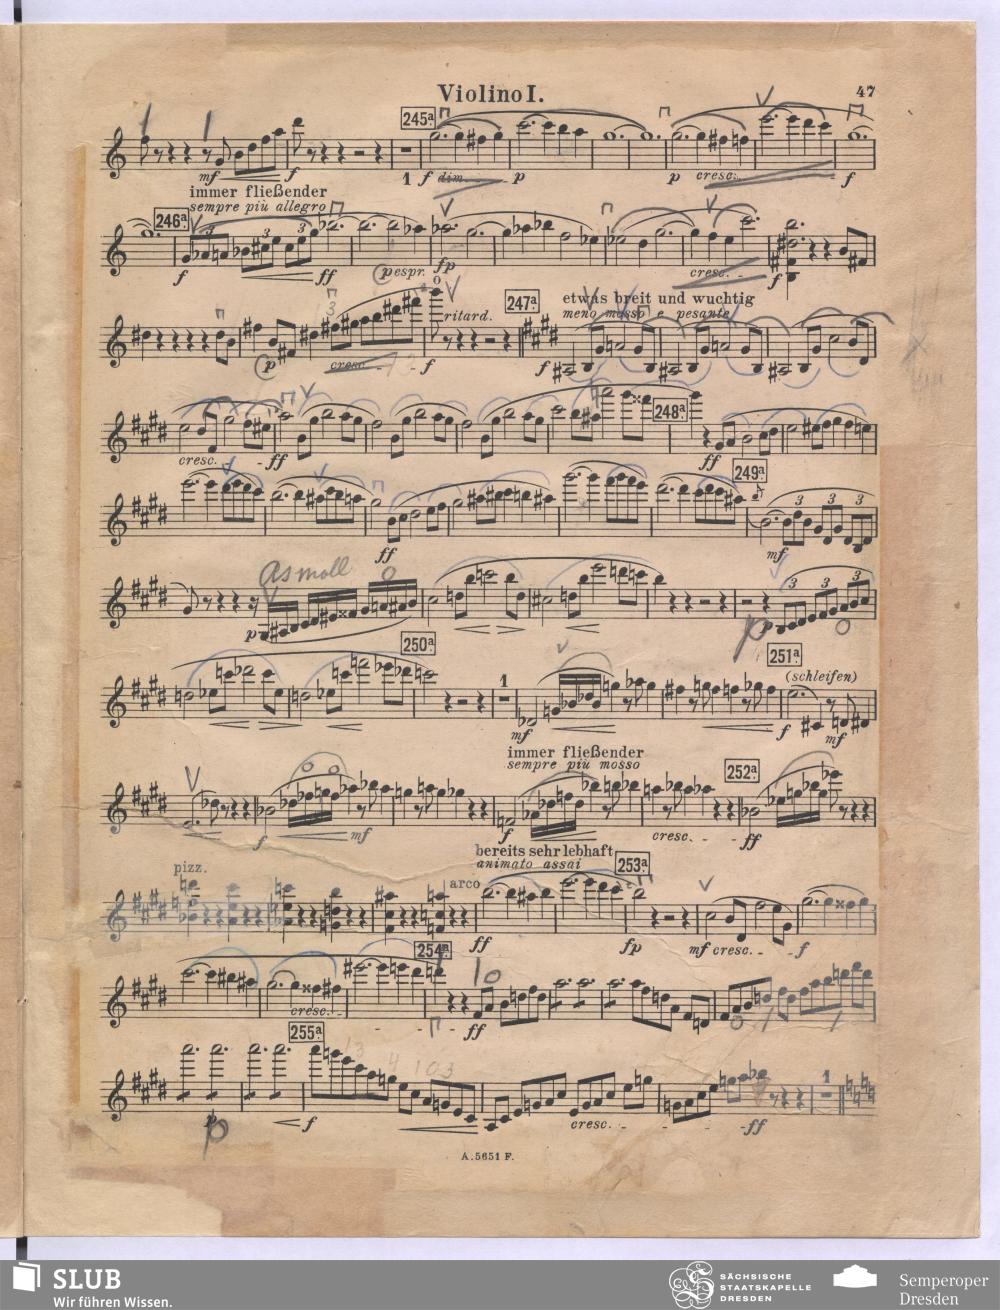 Violino I.
47
245a.
mf
f
1
f
dim.
p
p
cresc.
f
immer fließender
sempre più allegro
246a.
3
3
3
f
ff
p espr.
fp
cresc.
f
3
247a.
etwas breit und wuchtig
meno mosso e pesante
ritard.
p
cresc.
f
f
248a.
cresc.
ff
ff
249a.
3
3
ff
mf
as moll
3
3
p
p
250a.
1
251a.
(schleifen)
mf
f
mf
immer fließender
sempre più mosso
252a.
f
mf
f
cresc.
ff
bereits sehr lebhaft
animato assai
253a.
pizz.
arco
ff
fp
mf cresc.
f
254a.
10
cresc.
ff
255a.
1
p
f
cresc.
ff
A. 5651 F.
SLUB
Wir führen Wissen.
SÄCHSISCHE
STAATSKAPELLE
DRESDEN
Semperoper
Dresden